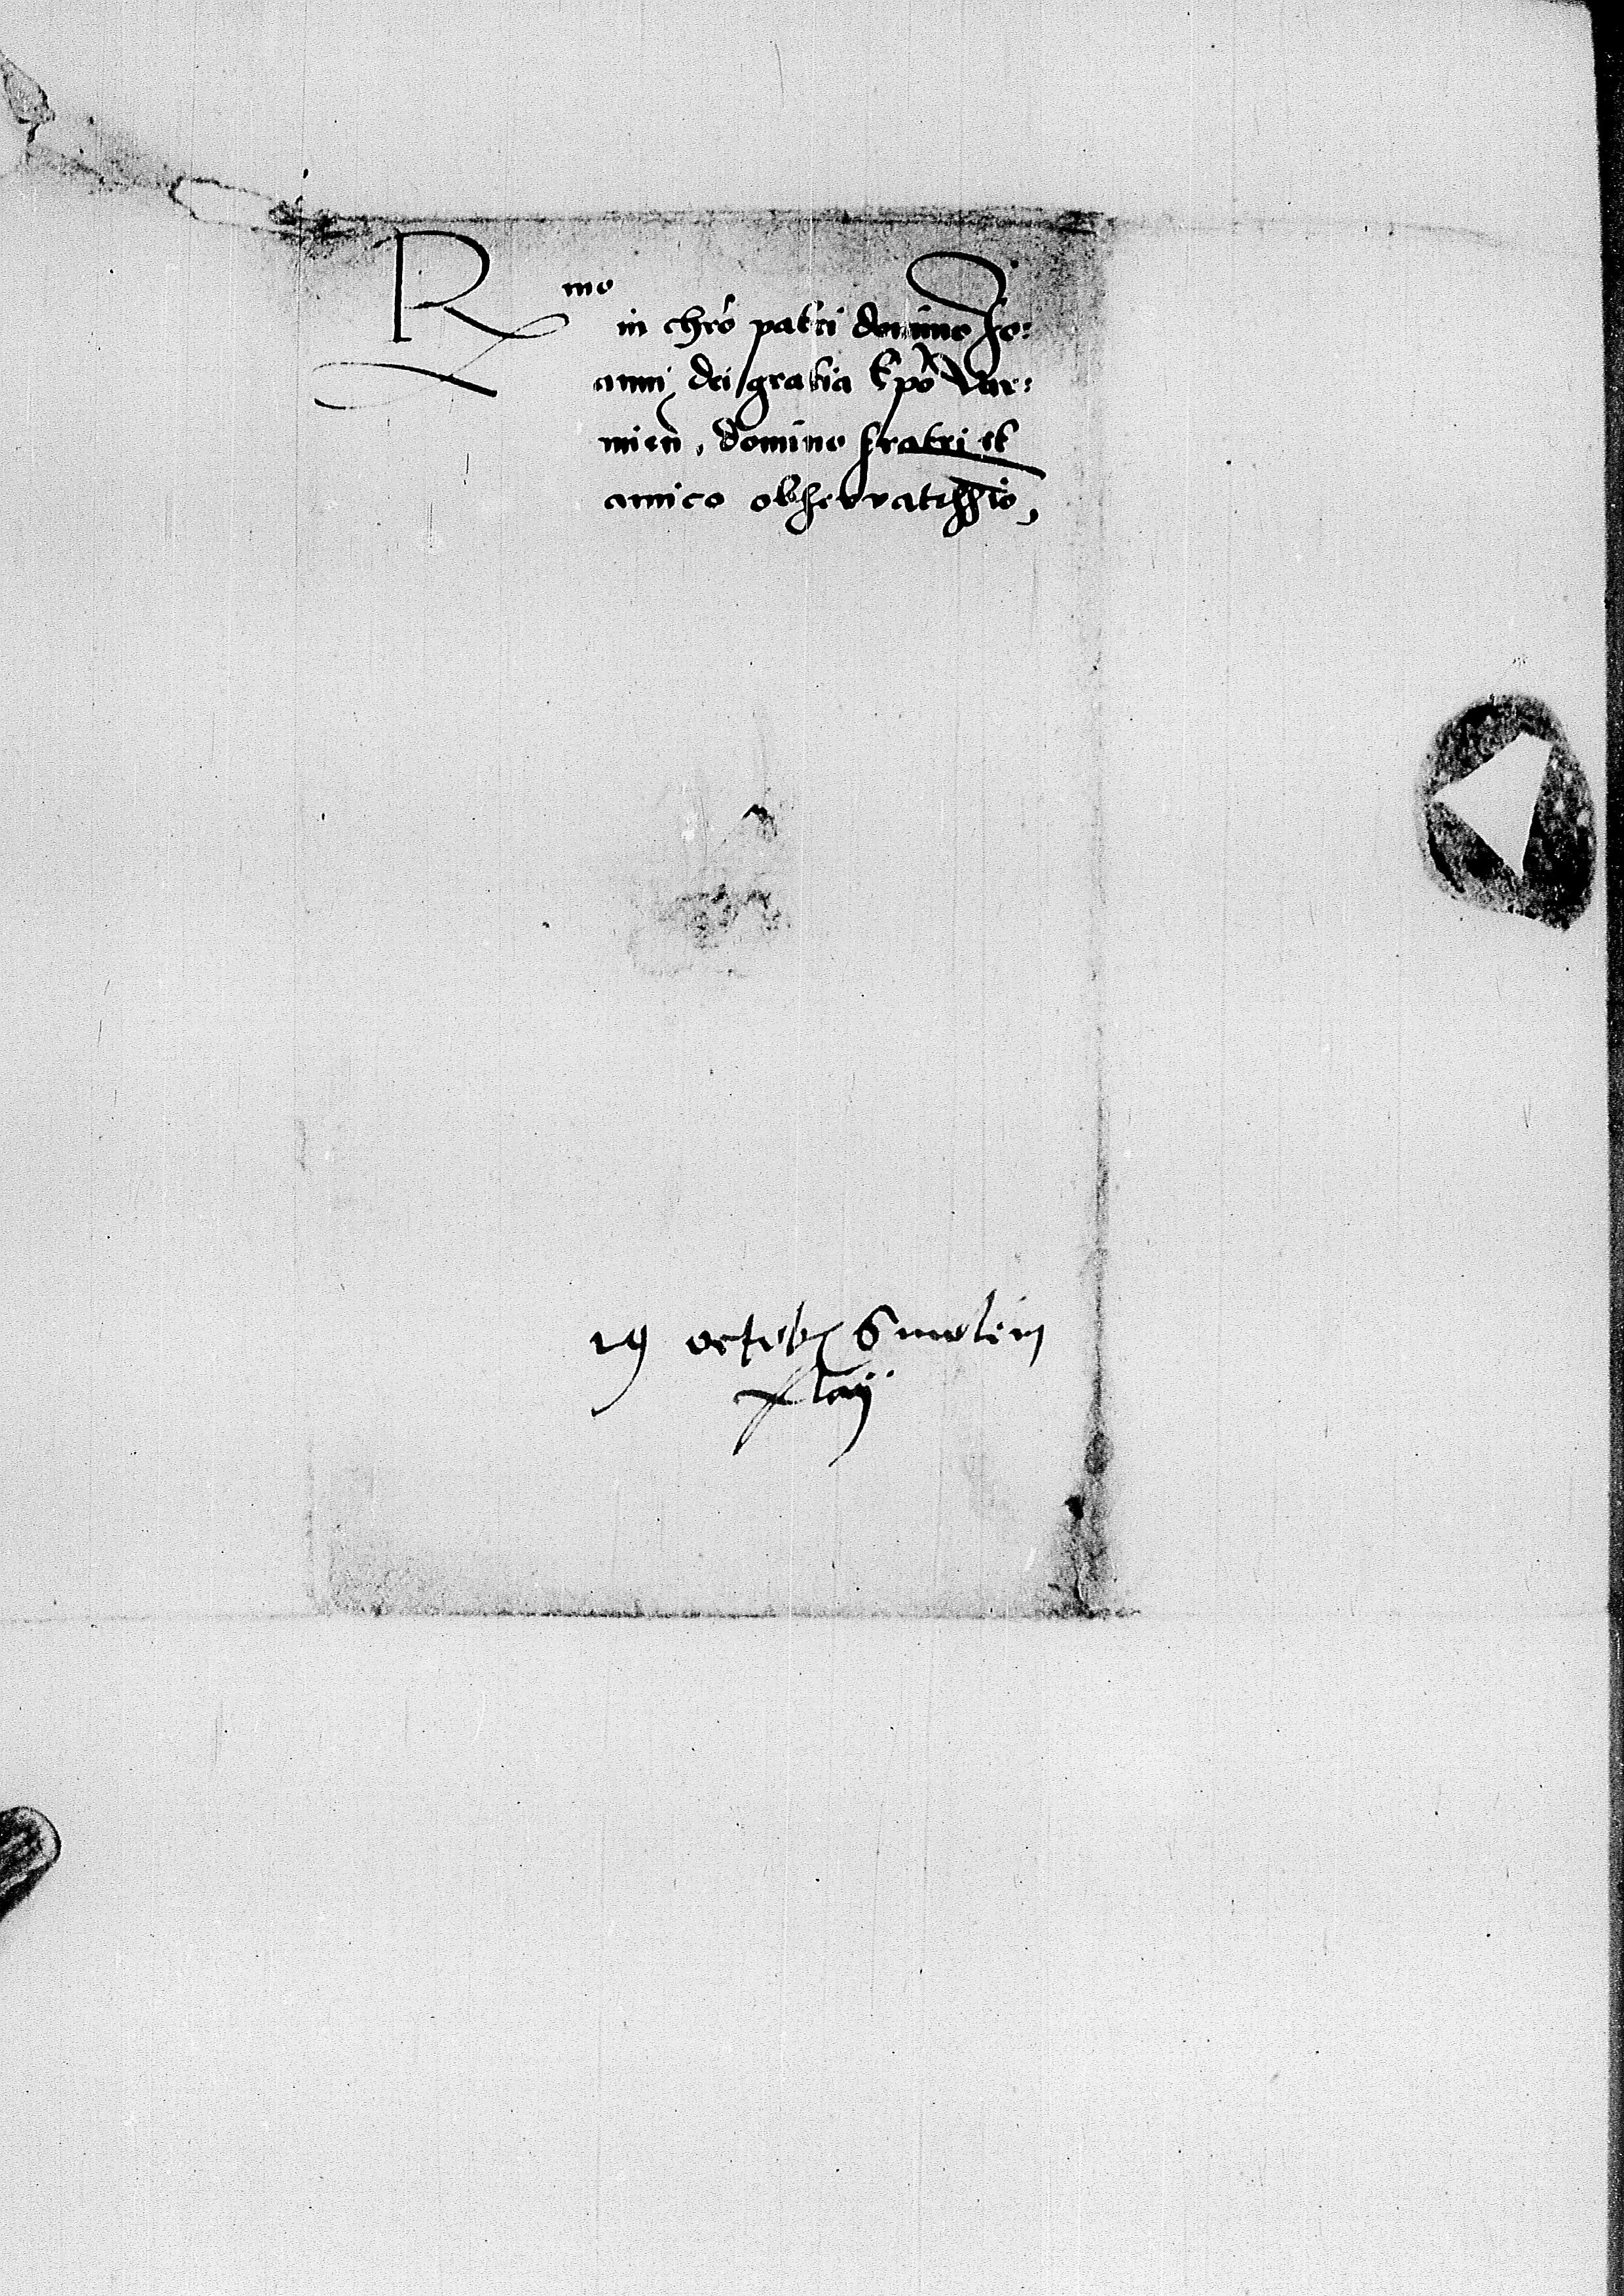 Rmo
in chro patri domino Jo:
anni dei gratia Epo Var:
mien, domino fratri et
amico observatissio,
19 octobr Smolein